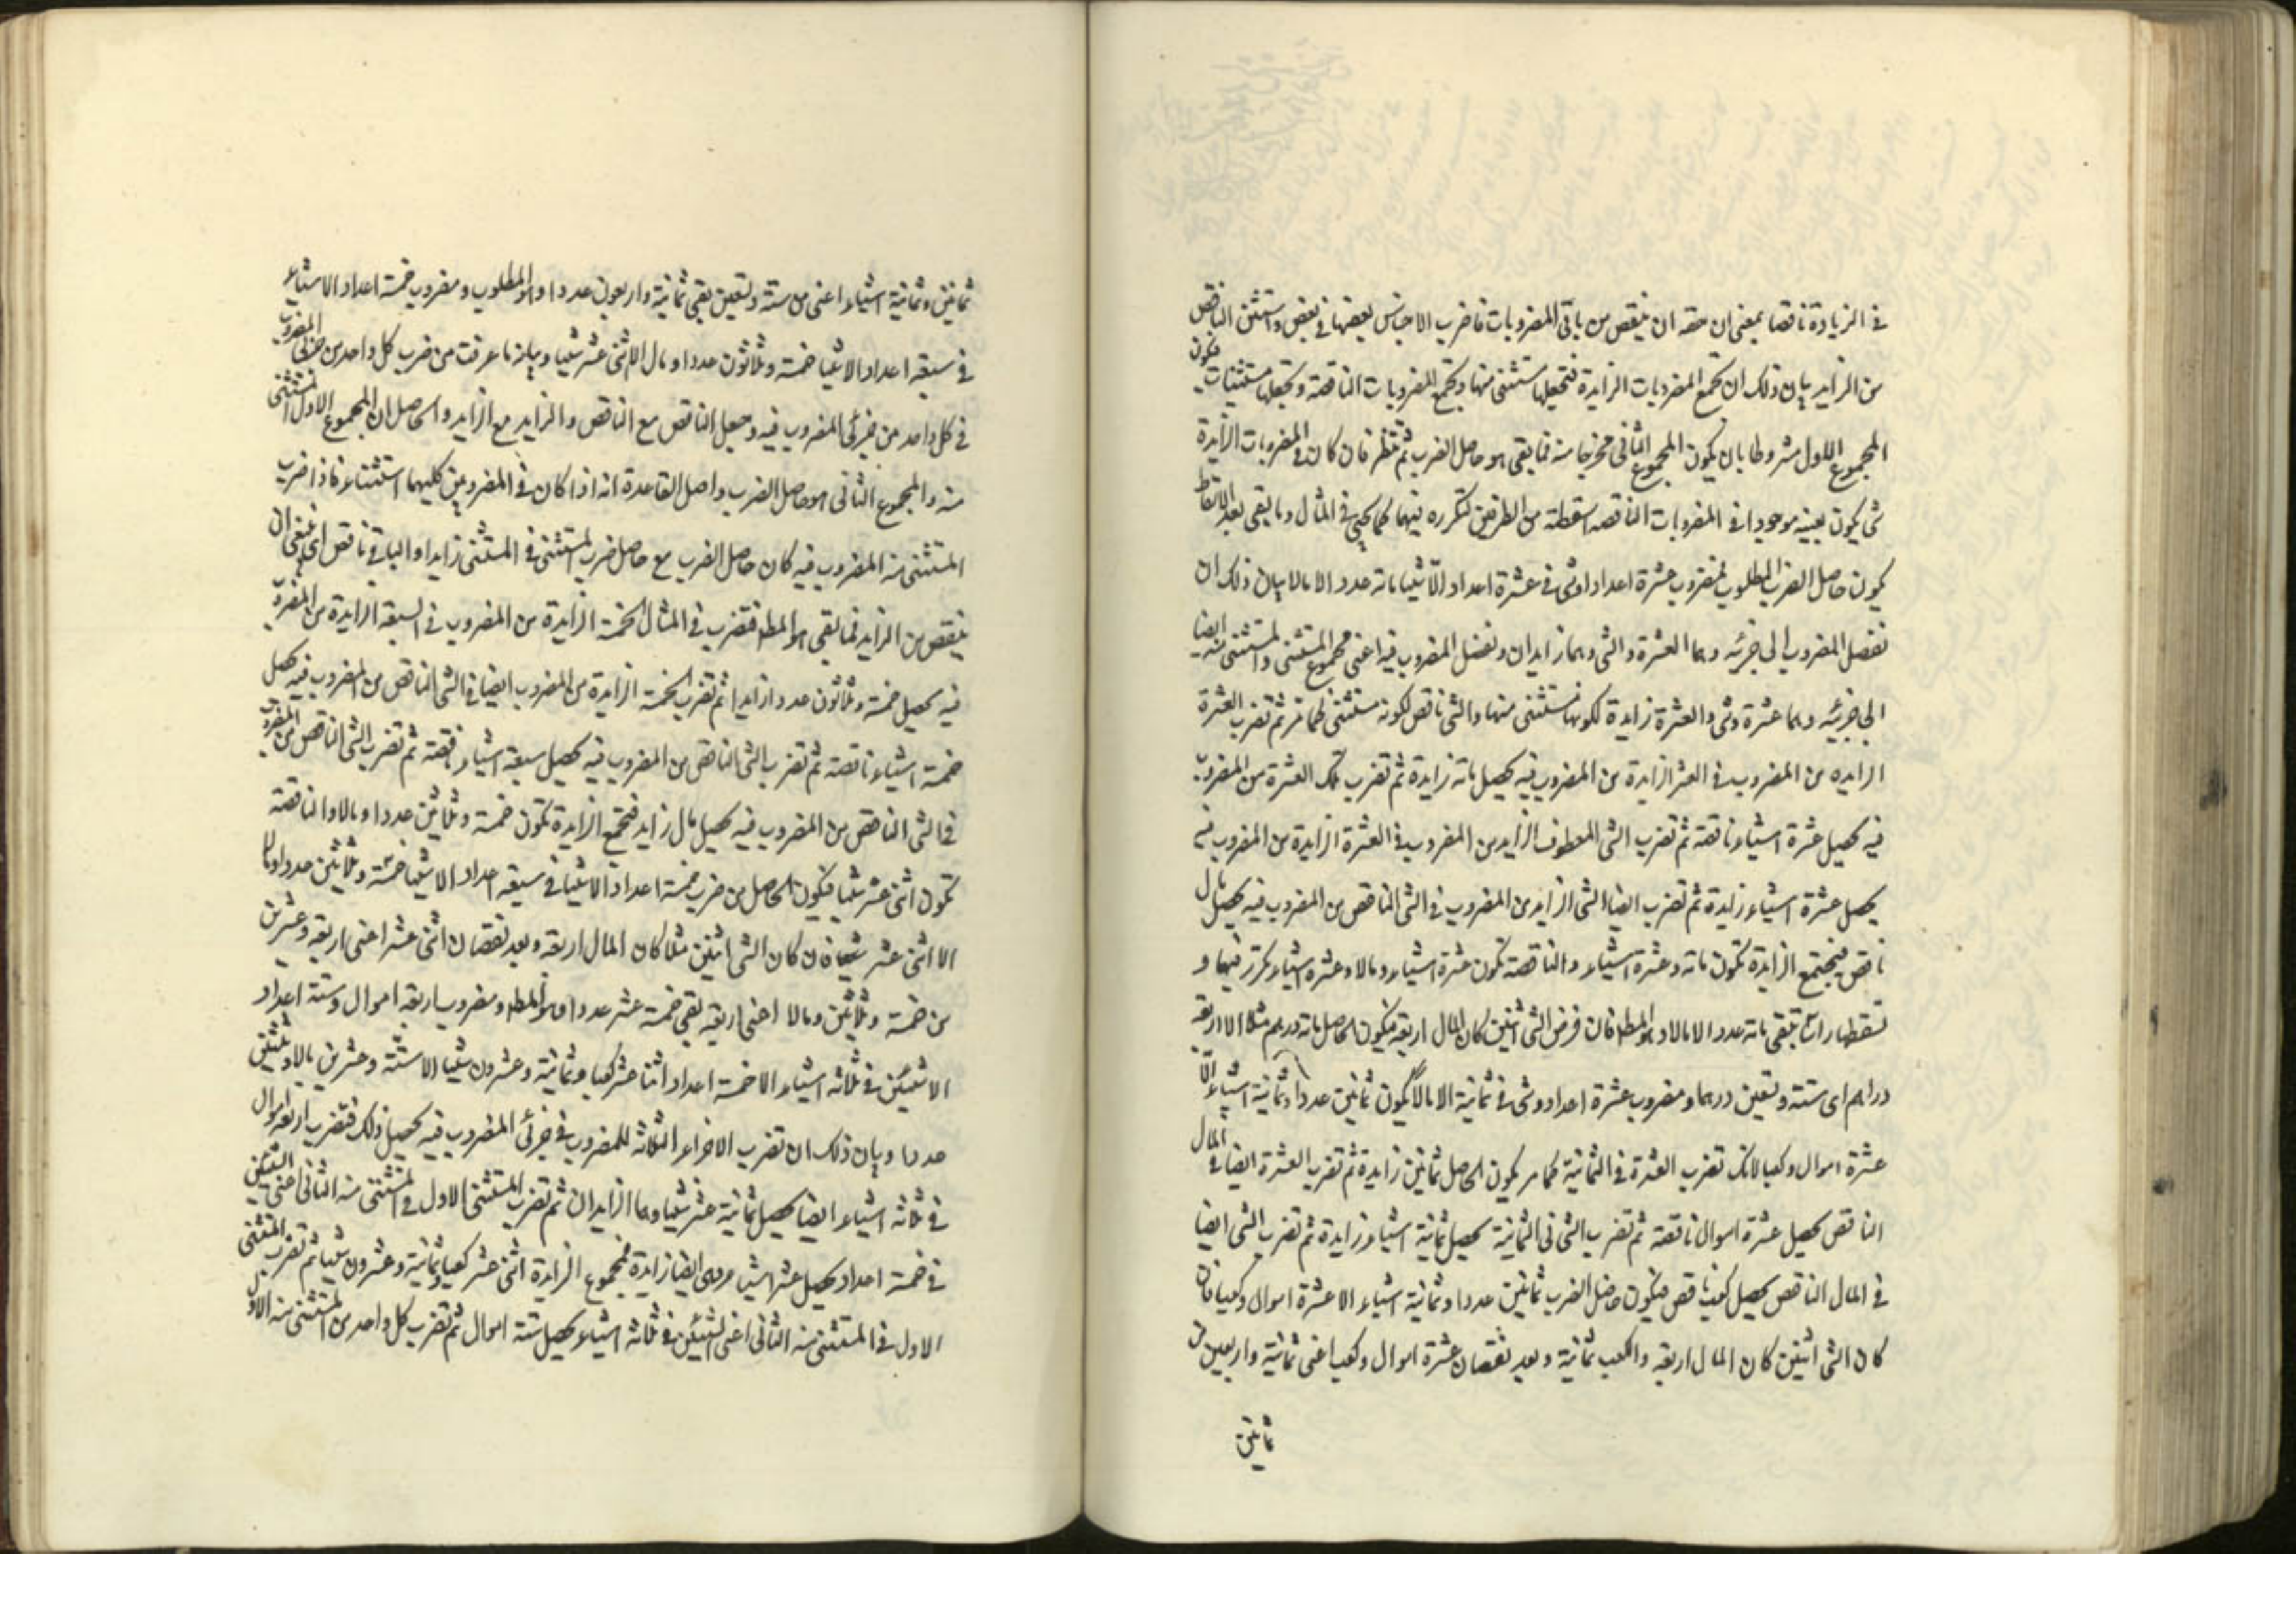 في الزيادة ناقصا بمعنى ان حقه ان ينقص من باقي المضروبات فاضرب الاجناس بعضها في بعض واستثن الناقص
من الزايد بيان ذلك ان تجمع المضروبات الزايدة فتجعلها مستثنى منها وتجمع المضروبات الناقصة وتجعلها مستثنيات فيكون
المجموع الاول مشروطا بان يكون المجموع الثاني مخرجا منه فما بقي هو حاصل الضرب ثم تنظر فان كان في المضروبات الزايدة
شي يكون بعينه موجودا في المضروبات الناقصه اسقطته من الطرفين لتكرره فيهما كما يجي في المثال وما يبقى بعد الاسقاط
يكون حاصل الضرب المطلوب فمضروب عشرة اعداد وشي في عشرة اعداد الا شيئا ماته عدد الا مالا بيان ذلك ان
تفصل المضروب الى جزئه وهما العشرة والشي وهما زايدان وتفصل المضروب فيه اعني مجموع المستثنى والمستثنى منه ايضا
الى جزئيه وهما عشرة وشي والعشرة زايدة لكونها مستثنى منها والشي ناقص لكونه مستثنى كما مر ثم تضرب العشرة
الزايده من المضروب في العشر الزايدة من المضروب فيه يحصل ماته زايدة ثم تضرب تلك العشرة من المضروب
فيه يحصل عشرة اشياء ناقصة ثم تضرب الشي المعطوف الزايد من المضروب في العشرة الزايدة من المضروب فيه
يحصل عشرة اشياء زايدة ثم تضرب ايضا الشي الزايد من المضروب في الشي الناقص من المضروب فيه يحصل مال
ناقص فيجتمع الزايدة تكون ماته وعشرة اشياء والناقصة تكون عشرة اشياء ومالا وعشرة اشياء تكرر فيهما و
تسقطها راسا تبقى ماته عدد الا مالا وهو المط فان فرض الشي اثنين كان المال اربعة فيكون الحاصل ماته درهم مثلا الا اربعة
دراهم اى ستة وتسعين درهما ومضروب عشرة اعداد وشي في ثمانية الا مالا يكون ثمانين عددا وثمانية اشياء الا
عشرة اموال وكعبا لانك تضرب العشرة في الثمانية كما مر يكون الحاصل ثمانين زايدة ثم تضرب العشرة ايضا في المال
الناقص يحصل عشرة اموال ناقصة ثم تضرب الشي في الثمانية يحصل ثمانية اشياء زايدة ثم تضرب الشي ايضا
في المال الناقص يحصل كعب ناقص فيكون حاصل الضرب ثمانين عددا وثمانية اشياء الا عشرة اموال وكعبا فان
كان الشي اثنين كان المال اربعة والكعب ثمانية وبعد نقصان عشرة اموال وكعب اعني ثمانية واربعين من
ثمانين
ثمانين وثمانية اشياء اعني من ستة وتسعين بقي ثمانية واربعون عددا وهو المطلوب ومضروب خمسة اعداد الا شياء
في سبعة اعداد الا شيا خمسة وثلاثون عددا ومال الا اثنى عشر شيئا وبيانه ما عرفت من ضرب كل واحد من جزئى المضروب
في كل واحد من جزئى المضروب فيه وجعل الناقص مع الناقص والزايد مع الزايد والحاصل ان المجموع الاول مستثنى
منه والمجموع الثاني هو حاصل الضرب واصل القاعدة انه اذا كان في المضروبين كليهما استثناء فاذا ضرب
المستثنى منه المضروب فيه كان حاصل الضرب مع حاصل ضرب المستثنى في المستثنى زايدا والباقي ناقص اى ينبغي ان
ينقص من الزايد فما بقي هو المط فتضرب في المثال الخمسة الزايدة من المضروب في السبعة الزايدة من المضروب
فيه يحصل خمسة وثلاثون عددا زايدا ثم تضرب الخمسة الزايدة من المضروب ايضا في الشي الناقص من المضروب فيه يحصل
خمسة اشياء ناقصة ثم تضرب الشي الناقص من المضروب فيه يحصل سبعة اشياء ناقصة ثم تضرب الشي الناقص من المضروب
في الشي الناقص من المضروب فيه يحصل مال زايد فتجمع الزايدة تكون خمسة وثلاثين عددا ومالا والناقصة
تكون اثنى عشر شيئا فيكون الحاصل من ضرب خمسة اعداد الا شيا في سبعة اعداد الا شيئا خمسة وثلاثين عددا ومالا
الا اثنى عشر شيئا فان كان الشي اثنين مثلا كان المال اربعة وبعد نقصان اثنى عشر اعني اربعة وعشرين
من خمسة وثلاثين ومالا اعني اربعة بقي خمسة عشر عددا وهو المط ومضروب اربعة اموال وستة اعداد
الا شيئين في ثلاثة اشياء الا خمسة اعداد اثنا عشر كعبا وثمانية وعشرون شيئا الا ستة وعشرين مالا وثلثين
عددا وبيان ذلك ان تضرب الاجزاء الثلاثة للمضروب في جزئى المضروب فيه يحصل ذلك فتضرب اربعة اموال
في ثلاثة اشياء ايضا يحصل ثمانية عشر شيئا وهما الزايدان ثم تضرب المستثنى الاول في المستثنى منه الثاني اعني الشيئين
في خمسة اعداد يحصل عشر اشيا وهي ايضا زايدة فمجموع الزايدة اثنى عشر كعبا وثمانية وعشرون شيئا ثم تضرب المستثنى
الاول في المستثنى منه الثاني اعني الشيئين في ثلاثة اشياء يحصل ستة اموال ثم تضرب كل واحد من المستثنى منه الاول